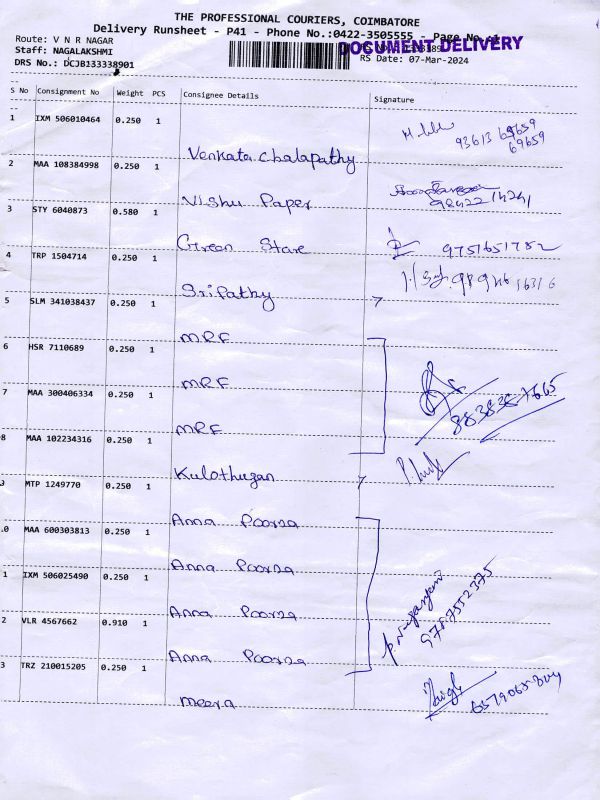 THE PROFESSIONAL COURIERS, COIMBATORE
Delivery Runsheet - P41 - Phone No.:0422-3505555 - Page No.:1
DOCUMENT DELIVERY
Route: V N R NAGAR
Staff: NAGALAKSHMI
RS Date: 07-Mar-2024
DRS No.: DCJB133338901
S No Consignment No Weight PCS Consignee Details Signature
1 IXM 506010464 0.250 1
93613 69659
69659
Venkata chalapathy
2 MAA 108384998 0.250 1
Vishu Paper
98422 14241
3 STY 6040873 0.580 1
Green Stare
9751651782
4 TRP 1504714 0.250 1
Sripathy
5 SLM 341038437 0.250 1
MRF
6 HSR 7110689 0.250 1
MRF
7 MAA 300406334 0.250 1
MRF
8 MAA 102234316 0.250 1
Kulothugan
9 MTP 1249770 0.250 1
Anna Poorna
0 MAA 600303813 0.250 1
Anna Poorna
1 IXM 506025490 0.250 1
Anna Poorna
2 VLR 4567662 0.910 1
9787552375
Anna Poorna
3 TRZ 210015205 0.250 1
meera